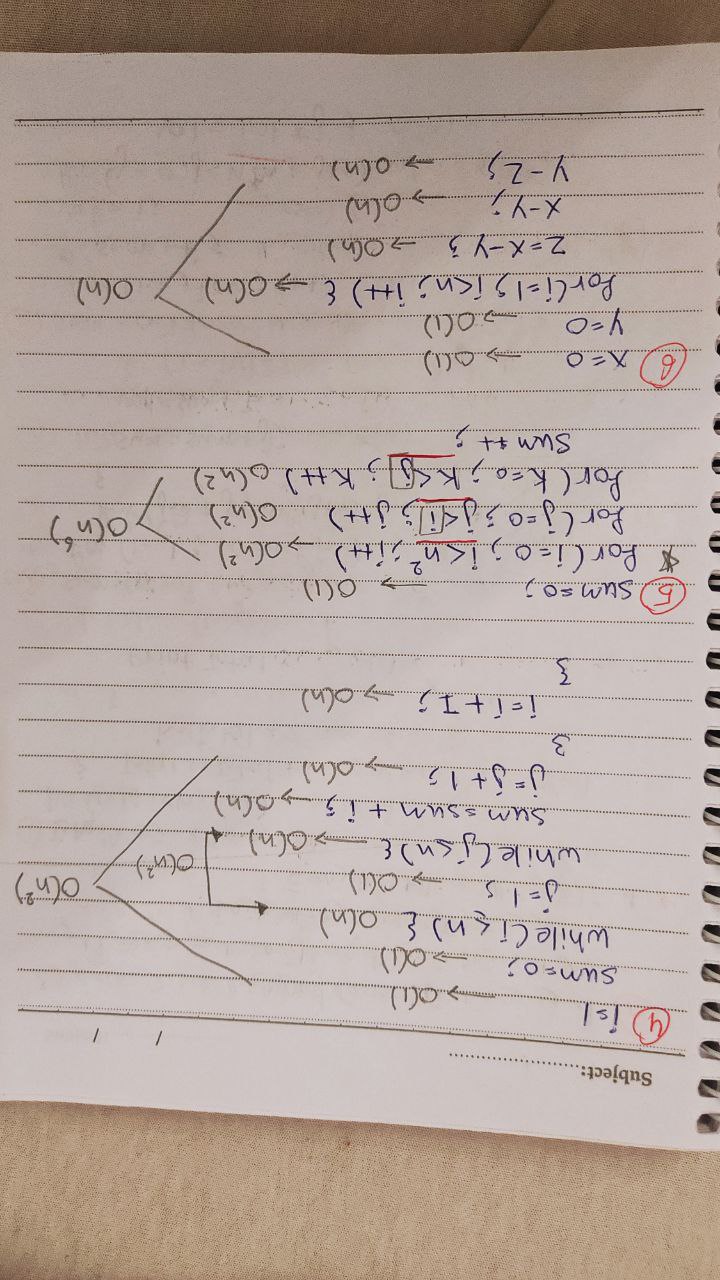 Subject:
/ /
4 i=1 → O(1)
sum=0; → O(1)
while(i≤n){ O(n)
j=1; → O(1)
while(j≤n){ → O(n) O(n²) O(n²)
sum=sum+i; → O(n)
j=j+1; → O(n)
}
i=i+1; → O(n)
}
5 sum=0; → O(1)
* for(i=0; i<n²; i++) → O(n²)
for(j=0; j<i; j++) O(n²) O(n⁶)
for(k=0; k<j; k++) O(n²)
sum++;
6 x=0 → O(1)
y=0 → O(1)
for(i=1; i<n; i++) { → O(n) O(n)
z=x-y; → O(n)
x-y; → O(n)
y-z; → O(n)